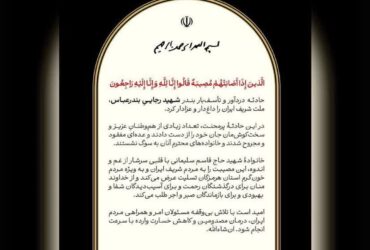 الَّذِينَ إِذَا أَصَابَتْهُمْ مُصِيبَةٌ قَالُوا إِنَّا لِلَّهِ وَإِنَّا إِلَيْهِ رَاجِعُونَ
حادثه دردآور و تأسف‌بار بندر شهید رجایی بندرعباس،
ملت شریف ایران را داغ‌دار و عزادار کرد.
در این حادثهٔ پرمحنت، تعداد زیادی از هم‌وطنان عزیز و
سخت‌کوش‌مان جان خود را از دست دادند و عده‌ای مفقود
و مجروح شدند و خانواده‌های محترم آنان به سوگ نشستند.
خانوادهٔ شهید حاج قاسم سلیمانی با قلبی سرشار از غم و
اندوه، این مصیبت را به مردم شریف ایران و به ویژه مردم
خون‌گرم استان هرمزگان تسلیت عرض می‌کند و از خداوند
منان برای درگذشتگان رحمت و برای آسیب‌دیدگان شفا و
بهبودی و برای بازماندگان صبر و اجر طلب می‌کند.
امید است با تلاش بی‌وقفه مسئولان امر و همراهی مردم
ایران، درمان مصدومین و کاهش خسارت وارده با سرعت
انجام شود. ان‌شاءالله.